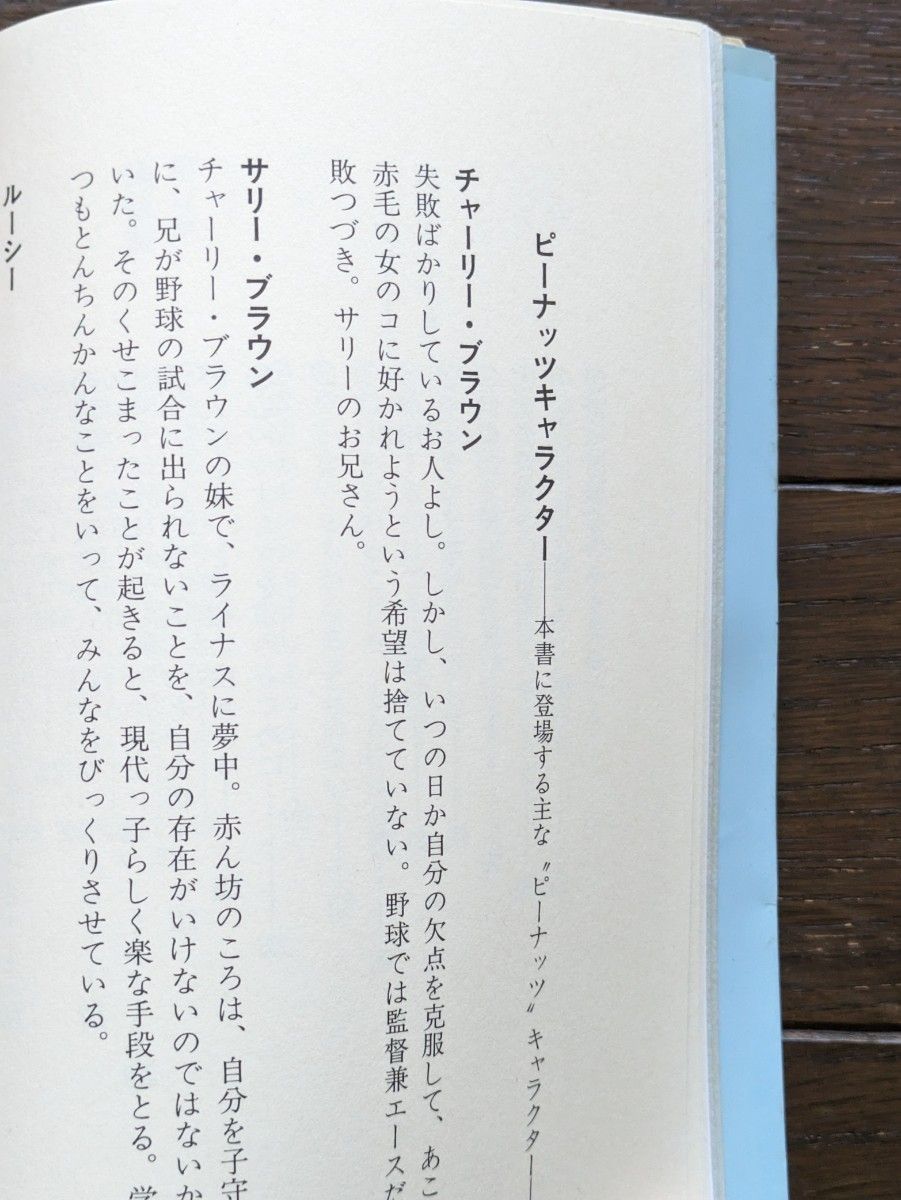 ピーナッツキャラクター——本書に登場する主な〝ピーナッツ〟キャラクター—
チャーリー・ブラウン
失敗ばかりしているお人よし。しかし、いつの日か自分の欠点を克服して、あこ
赤毛の女のコに好かれようという希望は捨てていない。野球では監督兼エースだ
敗つづき。サリーのお兄さん。
サリー・ブラウン
チャーリー・ブラウンの妹で、ライナスに夢中。赤ん坊のころは、自分を子守
に、兄が野球の試合に出られないことを、自分の存在がいけないのではないか
いた。そのくせこまったことが起きると、現代っ子らしく楽な手段をとる。学
つもとんちんかんなことをいって、みんなをびっくりさせている。
ルーシー